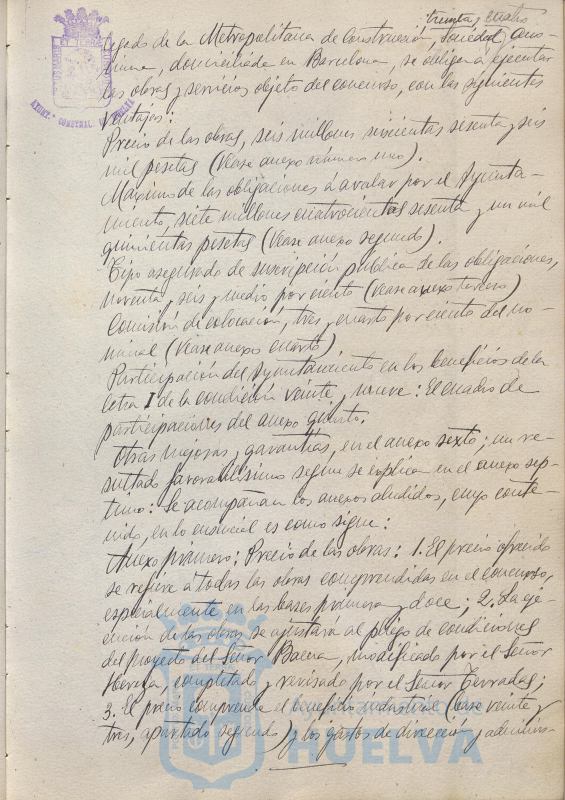 treinta y cuatro
gado de la Metropolitana de Construcción, Sociedad Anó-
nima, domiciliada en Barcelona, se obliga a ejecutar
las obras y servicios objeto del concurso, con las siguientes
Ventajas:
Precio de las obras, seis millones seiscientas sesenta y seis
mil pesetas (Véase anexo número uno).
Máximo de las obligaciones á avalar por el Ayunta-
miento, siete millones cuatrocientas sesenta y un mil
quinientas pesetas (Véase anexo segundo).
Tipo asegurado de suscripción pública de las obligaciones,
noventa y seis y medio por ciento (Véase anexo tercero)
Comisión de colocación, tres y cuarto por ciento del no-
minal (Véase anexo cuarto)
Participación del Ayuntamiento en los beneficios de la
letra I de la condición veinte y nueve: El cuadro de
participaciones del anexo quinto.
Otras mejoras y garantías, en el anexo sexto; un re-
sultado favorabilísimo segun se explica en el anexo sep-
timo: Se acompañan los anexos aludidos, cuyo conte-
nido, en lo esencial es como sigue:
Anexo primero: Precio de las obras: 1. El precio ofrecido
se refiere á todas las obras comprendidas en el concurso,
especialmente en las bases primera y doce; 2. La eje-
cución de las obras se ajustará al pliego de condiciones
del proyecto del Señor Bacca, modificado por el Señor
Herrera, completado y revisado por el Señor Terradas;
3. El precio comprende el beneficio industrial (base veinte y
tres, apartado segundo) y los gastos de dirección y adminis-
AYUNT.º CONSTNAL. DE HUELVA
HUELVA